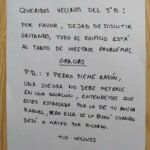 QUERIDOS VECINOS DEL 3ºB:
POR FAVOR, DEJAD DE DISCUTIR
GRITANDO, TODO EL EDIFICIO ESTÁ
AL TANTO DE VUESTROS PROBLEMAS.
GRACIAS
P.D.: Y PEDRO TIENE RAZÓN,
UNA SUEGRA NO DEBE METERSE
EN UNA RELACIÓN, ENTENDEMOS QUE
ESTÉS ESTRESADA POR LO DE TU AMIGA
RAQUEL, PERO ELLA SE LO BUSCÓ CUANDO
DEJÓ A MATEO POR RICARDO.
TUS VECINOS